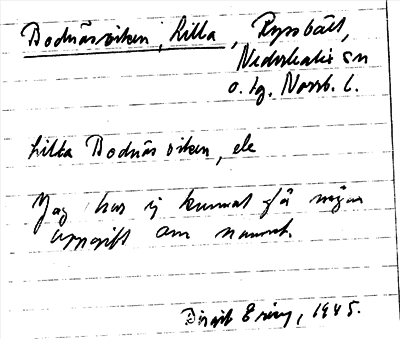 Bodnäsviken, Lilla, Ryssbält,
Nederkalix sn
o. tg. Norrb. l.
Lilla Bodnäsviken, ele
Jag har ej kunnat få någon
uppgift om namnet.
Birgit Ering, 1945.